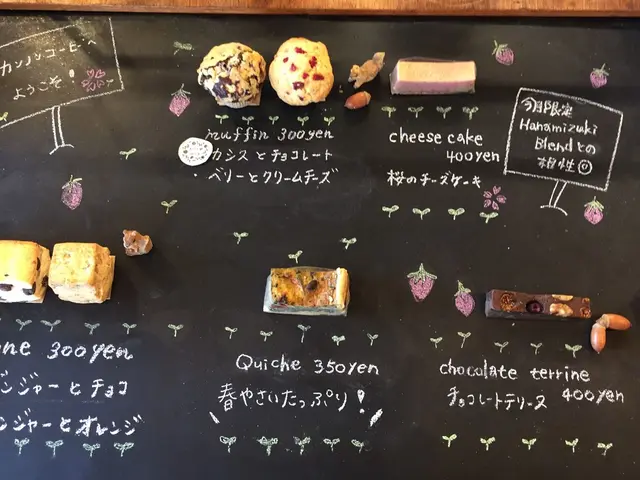 カンノンコーヒーへ
ようこそ!
muffin 300yen
カシスとチョコレート
・ベリーとクリームチーズ
cheese cake
400yen
桜のチーズケーキ
Hanamizuki
Blendとの
相性
ne 300yen
ンジャーとチョコ
ンジャーとオレンジ
Quiche 350yen
春やさいたっぷり!
chocolate terrine
チョコレートテリーヌ 400yen